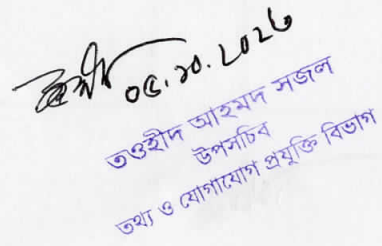 ০৫.১০.২০২৬
তওহীদ আহমদ সজল
উপসচিব
তথ্য ও যোগাযোগ প্রযুক্তি বিভাগ